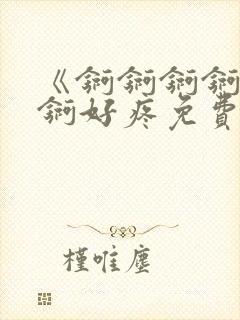 《锕锕锕锕
锕好疼免費
槿唯塵